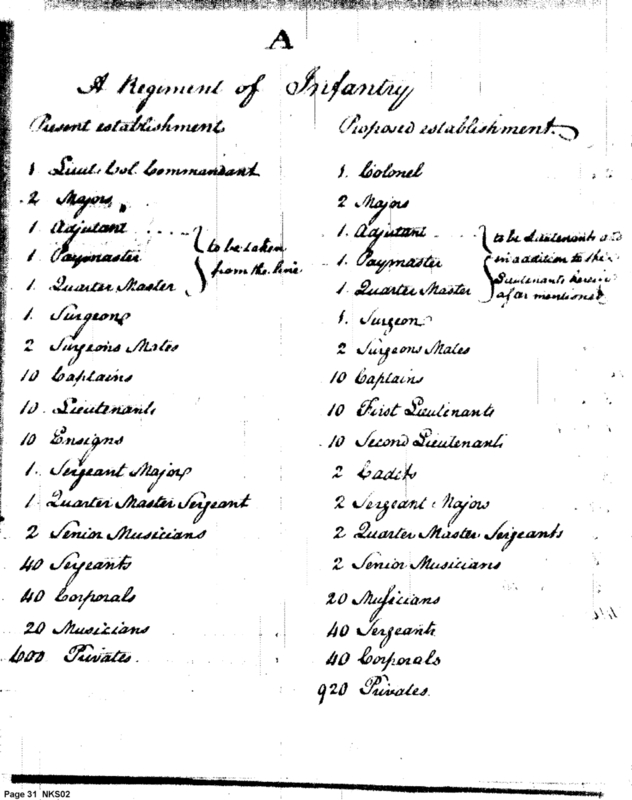 A
A Regiment of Infantry
Present establishment
1 Lieut. Col. Commandant
2 Majors
1 Adjutant
1 Paymaster
1 Quarter Master
to be taken
from the line
1 Surgeon
2 Surgeons Mates
10 Captains
10 Lieutenants
10 Ensigns
1 Sergeant Major
1 Quarter Master Sergeant
2 Senior Musicians
40 Sergeants
40 Corporals
20 Musicians
600 Privates.
Proposed establishment.
1. Colonel
2 Majors
1. Adjutant
1. Paymaster
1 Quarter Master
to be Lieutenants and
in addition to the
Lieutenants herein
after mentioned
1. Surgeon
2 Surgeons Mates
10 Captains
10 First Lieutenants
10 Second Lieutenants
2 Cadets
2 Sergeant Majors
2 Quarter Master Sergeants
2 Senior Musicians
20 Musicians
40 Sergeants
40 Corporals
920 Privates.
Page 31 NKS02